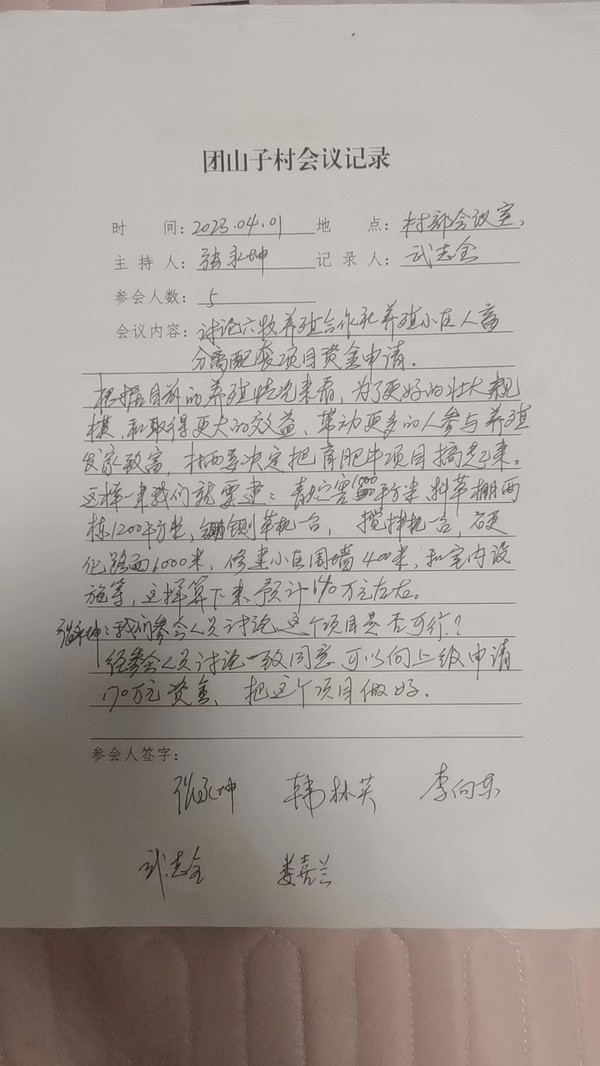 团山子村会议记录
时 间: 2023.04.01 地 点: 村部会议室.
主持人: 张永坤 记录人: 武志全
参会人数: 5
会议内容: 讨论六牧养殖合作社养殖小区人畜
分离配套项目资金申请.
根据目前的养殖情况来看, 为了更好的壮大规
模, 和取得更大的效益、带动更多的人参与养殖
发家致富, 村两委决定把育肥牛项目搞起来。
这样一来我们就要建: 青贮窖 平方米 料草棚两
栋1200平方米, 铡草机一台, 搅拌机一台, 硬
化路面6000米, 修建小区围墙400米, 和室内设
施等, 这样算下来 预计170万元左右。
张永坤: 我们参会人员讨论 这个项目是否可行?
经参会人员讨论一致同意 可以向上级申请
170万元 资金、把这个项目做好.
参会人签字:
张永坤 韩林英 李向东
武志全 娄喜兰